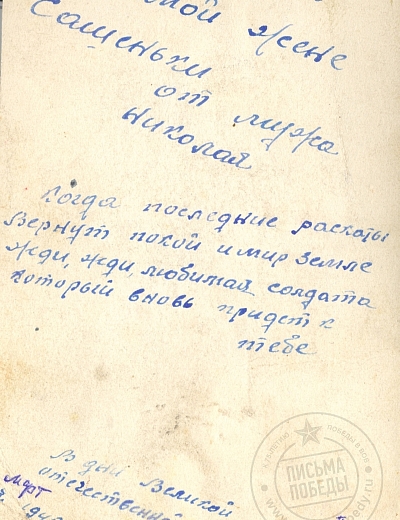 моей жене
Сашеньки
от мужа
Николая
Когда последние раскаты
Вернут покой и мир земле
Жди, жди, любимая солдата
Который вновь придет к
тебе
В дни Великой
отечественной
Март
ПИСЬМА
ПОБЕДЫ